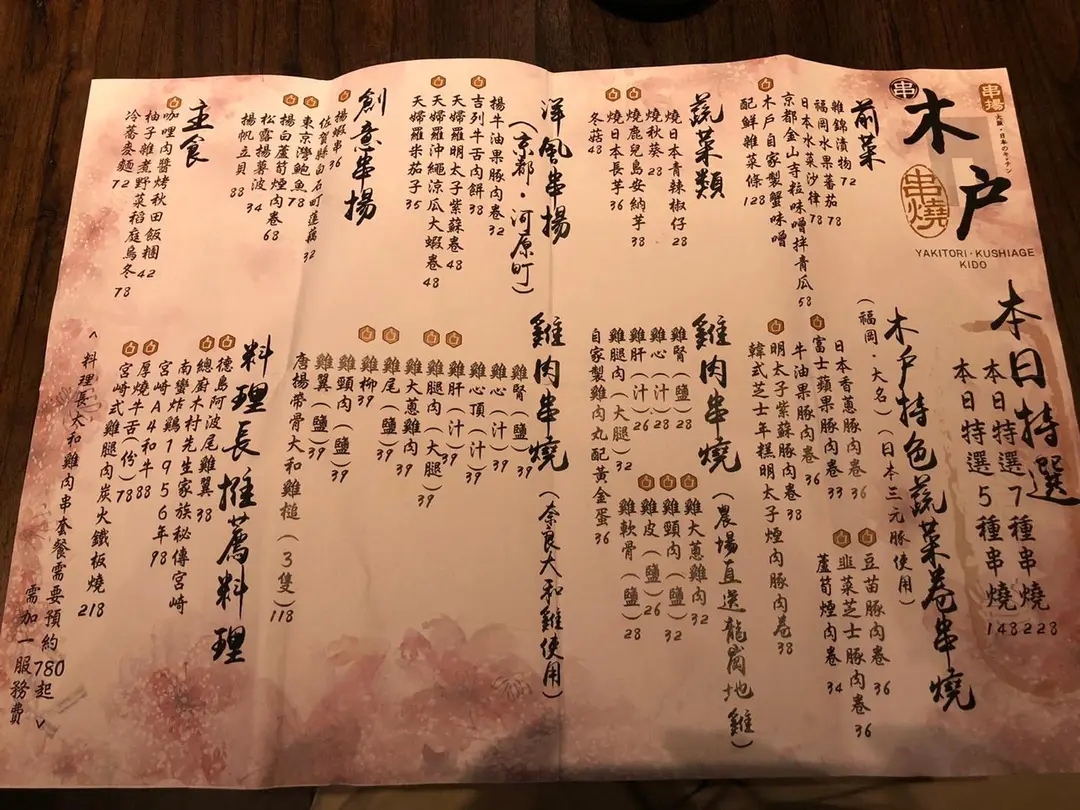 串
木戶
串揚
大阪・日本のキッチン
串燒
YAKITORI・KUSHIAGE
KIDO
本日特選
本日特選7種串燒228
本日特選5種串燒148
前菜
雜錦漬物72
福岡水果蕃茄78
日本水菜沙律78
京都金山寺粒味噌拌青瓜58
木戶自家製蟹味噌
配鮮雜菜條128
木戶特色蔬菜卷串燒
(福岡・大名)(日本三元豚使用)
日本香蔥豚肉卷36
富士蘋果豚肉卷33
牛油果豚肉卷36
明太子紫蘇豚肉卷38
韓式芝士年糕明太子煙肉豚肉卷38
豆苗豚肉卷36
韮菜芝士豚肉卷36
蘆筍煙肉卷34
蔬菜類
燒日本青辣椒仔28
燒秋葵28
燒鹿兒島安納芋38
燒日本長芋36
冬菇48
雞肉串燒(農場直送龍崗地雞)
雞腎(鹽)28
雞心(汁)28
雞肝(汁)26
雞腿肉(大腿)32
自家製雞肉丸配黃金蛋36
雞大蔥雞肉32
雞頸肉(鹽)32
雞皮(鹽)26
雞軟骨(鹽)28
洋風串揚
(京都・河原町)
揚牛油果豚肉卷32
吉列牛舌肉餅38
天婦羅明太子紫蘇卷48
天婦羅沖繩涼瓜大蝦卷48
天婦羅米茄子35
雞肉串燒(奈良大和雞使用)
雞腎(鹽)39
雞心(汁)39
雞心頂(汁)39
雞肝(汁)39
雞腿肉(大腿)39
雞大蔥雞肉39
雞尾(鹽)39
雞柳39
雞頸肉(鹽)39
雞翼(鹽)39
唐揚帶骨大和雞槌(3隻)118
創意串揚
揚蝦串36
佐賀縣白石町蓮藕32
東京灣鮑魚78
揚白蘆筍煙肉卷68
松露揚薯波34
揚帆立貝88
料理長推薦料理
德島阿波尾雞翼38
總廚木村先生家族秘傳宮崎
南蠻炸鷄1956年98
宮崎A4和牛88
厚燒牛舌(份)78
宮崎式雞腿肉炭火鐵板燒218
主食
咖哩肉醬烤秋田飯糰42
柚子雜煮野菜稻庭烏冬78
冷蕎麥麵72
<料理長大和雞肉串套餐需要預約780起>
需加一服務費